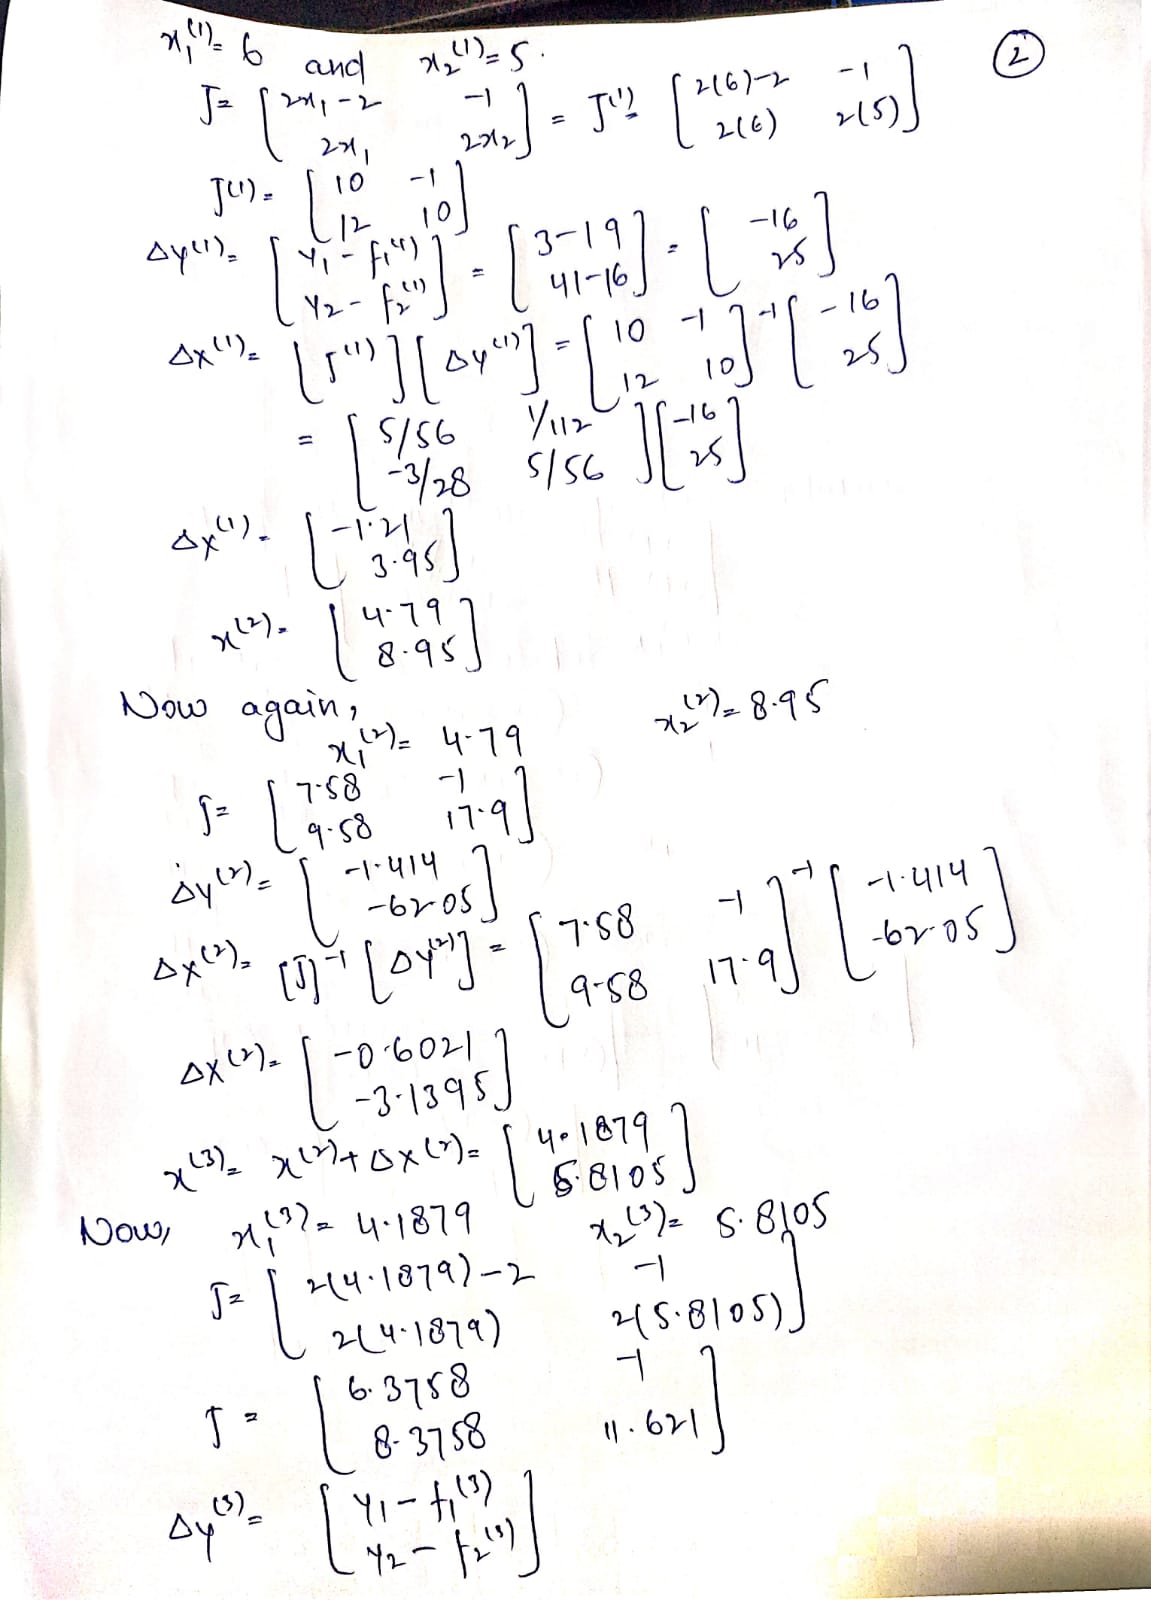 x₁⁽¹⁾= 6 and x₂⁽¹⁾= 5. ②
J= [2x₁-2 -1; 2x₁ 2x₂] = J⁽¹⁾= [2(6)-2 -1; 2(6) 2(5)]
J⁽¹⁾= [10 -1; 12 10]
Δy⁽¹⁾= [y₁-f₁⁽¹⁾; y₂-f₂⁽¹⁾] = [3-19; 41-16] = [-16; 25]
Δx⁽¹⁾= [J⁽¹⁾][Δy⁽¹⁾] = [10 -1; 12 10]⁻¹ [-16; 25]
= [5/56 1/112; -3/28 5/56] [-16; 25]
Δx⁽¹⁾= [-1.21; 3.95]
x⁽²⁾= [4.79; 8.95]
Now again,
x₁⁽²⁾= 4.79 x₂⁽²⁾= 8.95
J= [7.58 -1; 9.58 17.9]
Δy⁽²⁾= [-1.414; -62.05]
Δx⁽²⁾= [J]⁻¹ [Δy⁽²⁾] = [7.58 -1; 9.58 17.9]⁻¹ [-1.414; -62.05]
Δx⁽²⁾= [-0.6021; -3.1395]
x⁽³⁾= x⁽²⁾+Δx⁽²⁾= [4.1879; 5.8105]
Now, x₁⁽³⁾= 4.1879 x₂⁽³⁾= 5.8105
J= [2(4.1879)-2 -1; 2(4.1879) 2(5.8105)]
J = [6.3758 -1; 8.3758 11.621]
Δy⁽³⁾= [y₁-f₁⁽³⁾; y₂-f₂⁽³⁾]